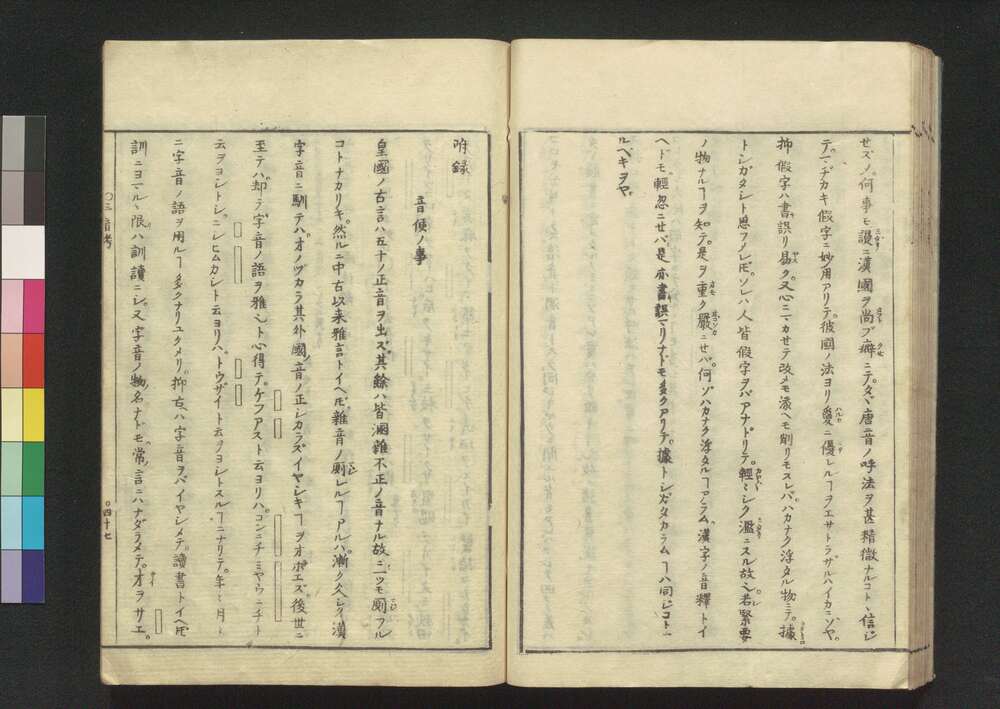 セズ。ノ何事モ謾ニ漢國ヲ尚ブ癖ニテ。タヾ唐音ノ呼法ヲ甚精微ナルコトヽ信ジ
テ。マヂカキ假字ニ妙用アリテ。彼國ノ法ヨリ夐ニ優レルヿヲエサトラザルハイカニゾヤ。
抑假字ハ書誤リ易ク。又心ニマカセテ改メモ添ヘモ削リモスレバ。ハカナク浮タル物ニテ。據
トシガタシト思フメレ𪜈。ソレハ人皆假字ヲバアナドリテ。輕〻シク濫ニスル故也。若緊要
ノ物ナルヿヲ知テ。是ヲ重ク嚴ニセバ。何ゾハカナク浮タルヿアラム。漢字ノ音釋トイ
ヘドモ。輕忽ニセバ。是亦書誤マリナドモ多クアリテ。據トシガタカラムヿハ同ジコトナ
ルベキヲヤ。
附録
音便ノ事
皇國ノ古言ハ五十ノ正音ヲ出ズ。其餘ハ皆溷雜不正ノ音ナル故ニ一ツモ厠フル
コトナカリキ。然ルニ中古以来雅言トイヘ𪜈。雜音ノ厠レルヿアルハ。漸ク久シク漢
字音ニ馴テハ。オノヅカラ其外國ノ音ノ正シカラズイヤシキヿヲオボエズ。後世ニ
至テハ。却テ字音ノ語ヲ雅也ト心得テ。ケフアスト云ヨリハ。コンニチミヤウニチト
云ヲヨシトシ。ニシヒムカシト云ヨリハ。トウザイト云ヲヨシトスルヿニナリテ。年〻月〻
ニ字音ノ語ヲ用ルヿ多クナリユクメリ。抑古ハ字音ヲバイヤシメテ。讀書トイヘ𪜈
訓ニヨマルヽ限ハ訓讀ニシ。又字音ノ物ノ名ナドモ。常ノ言ニハナダラメテ。オヲサエ。
三音考
四十七